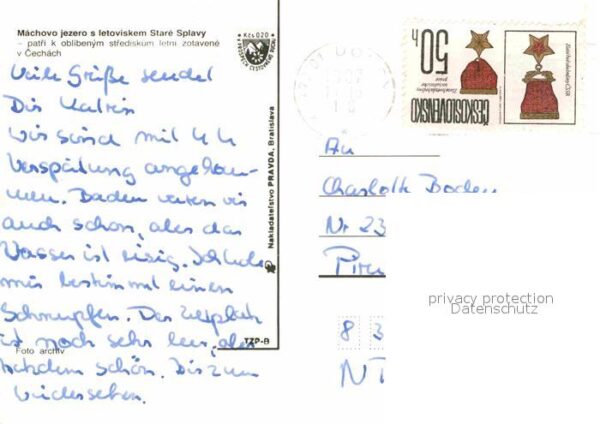 Máchovo jezero s letoviskem Staré Splavy
– patří k oblíbeným střediskům letní zotavené
v Čechách
Kčs 0,20
Viele Grüße sendet
Dir Katrin
wir sind mit 4 h
Verspätung angekom-
men. Baden waren wir
auch schon, aber das
Wasser ist eisig. Ich habe
mir bestimmt einen
Schnupfen. Der Zeltplatz
ist noch sehr leer, aber
trotzdem schön. Bis zum
Wiedersehen.
Foto archiv
TZP-B
Nakladatelstvo PRAVDA, Bratislava
50 h
ČESKOSLOVENSKO
An
Charlotte Boden
Nr 23
8 3
privacy protection
Datenschutz